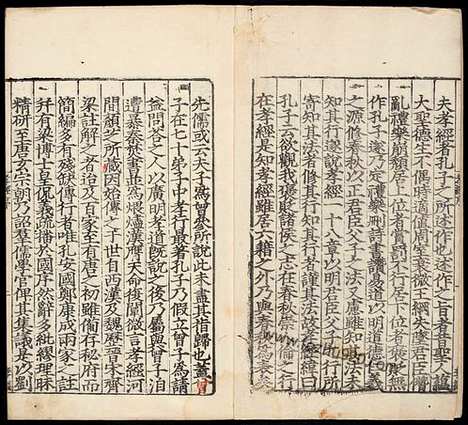 夫孝經者孔子之所述作也述作之旨者昔聖人蘊
大聖德生不偶時適值周室衰微王綱失墜君臣僭
亂禮樂崩頹居上位者賞罰不行居下位者褒貶無
作孔子遂乃定禮樂刪詩書讚易道以明道德仁義
之源修春秋以正君臣父子之法又慮雖知其法未
知其行遂說孝經一十八章以明君臣父子之行所
寄知其法者修其行知其行者謹其法故孝經緯曰
孔子云欲觀我褒貶諸侯之志在春秋崇人倫之行
在孝經是知孝經雖居六籍之外乃與春秋為表矣
先儒或云夫子為曾參所說此未盡其指歸也蓋曾
子在七十弟子中孝行最著孔子乃假立曾子為請
益問答之人以廣明孝道既說之後乃屬與曾子洎
遭暴秦焚書並為煨燼漢膺天命復闡微言孝經河
間顏芝所藏因始傳之于世自西漢及魏歷晉宋齊
梁註解之者迨及百家至有唐之初雖備存秘府而
簡編多有殘缺傳行者唯孔安國鄭康成兩家之註
并有梁博士皇侃義疏播於國序然辭多紕繆理昧
精研至唐玄宗朝乃詔群儒學官俾其集議是以劉